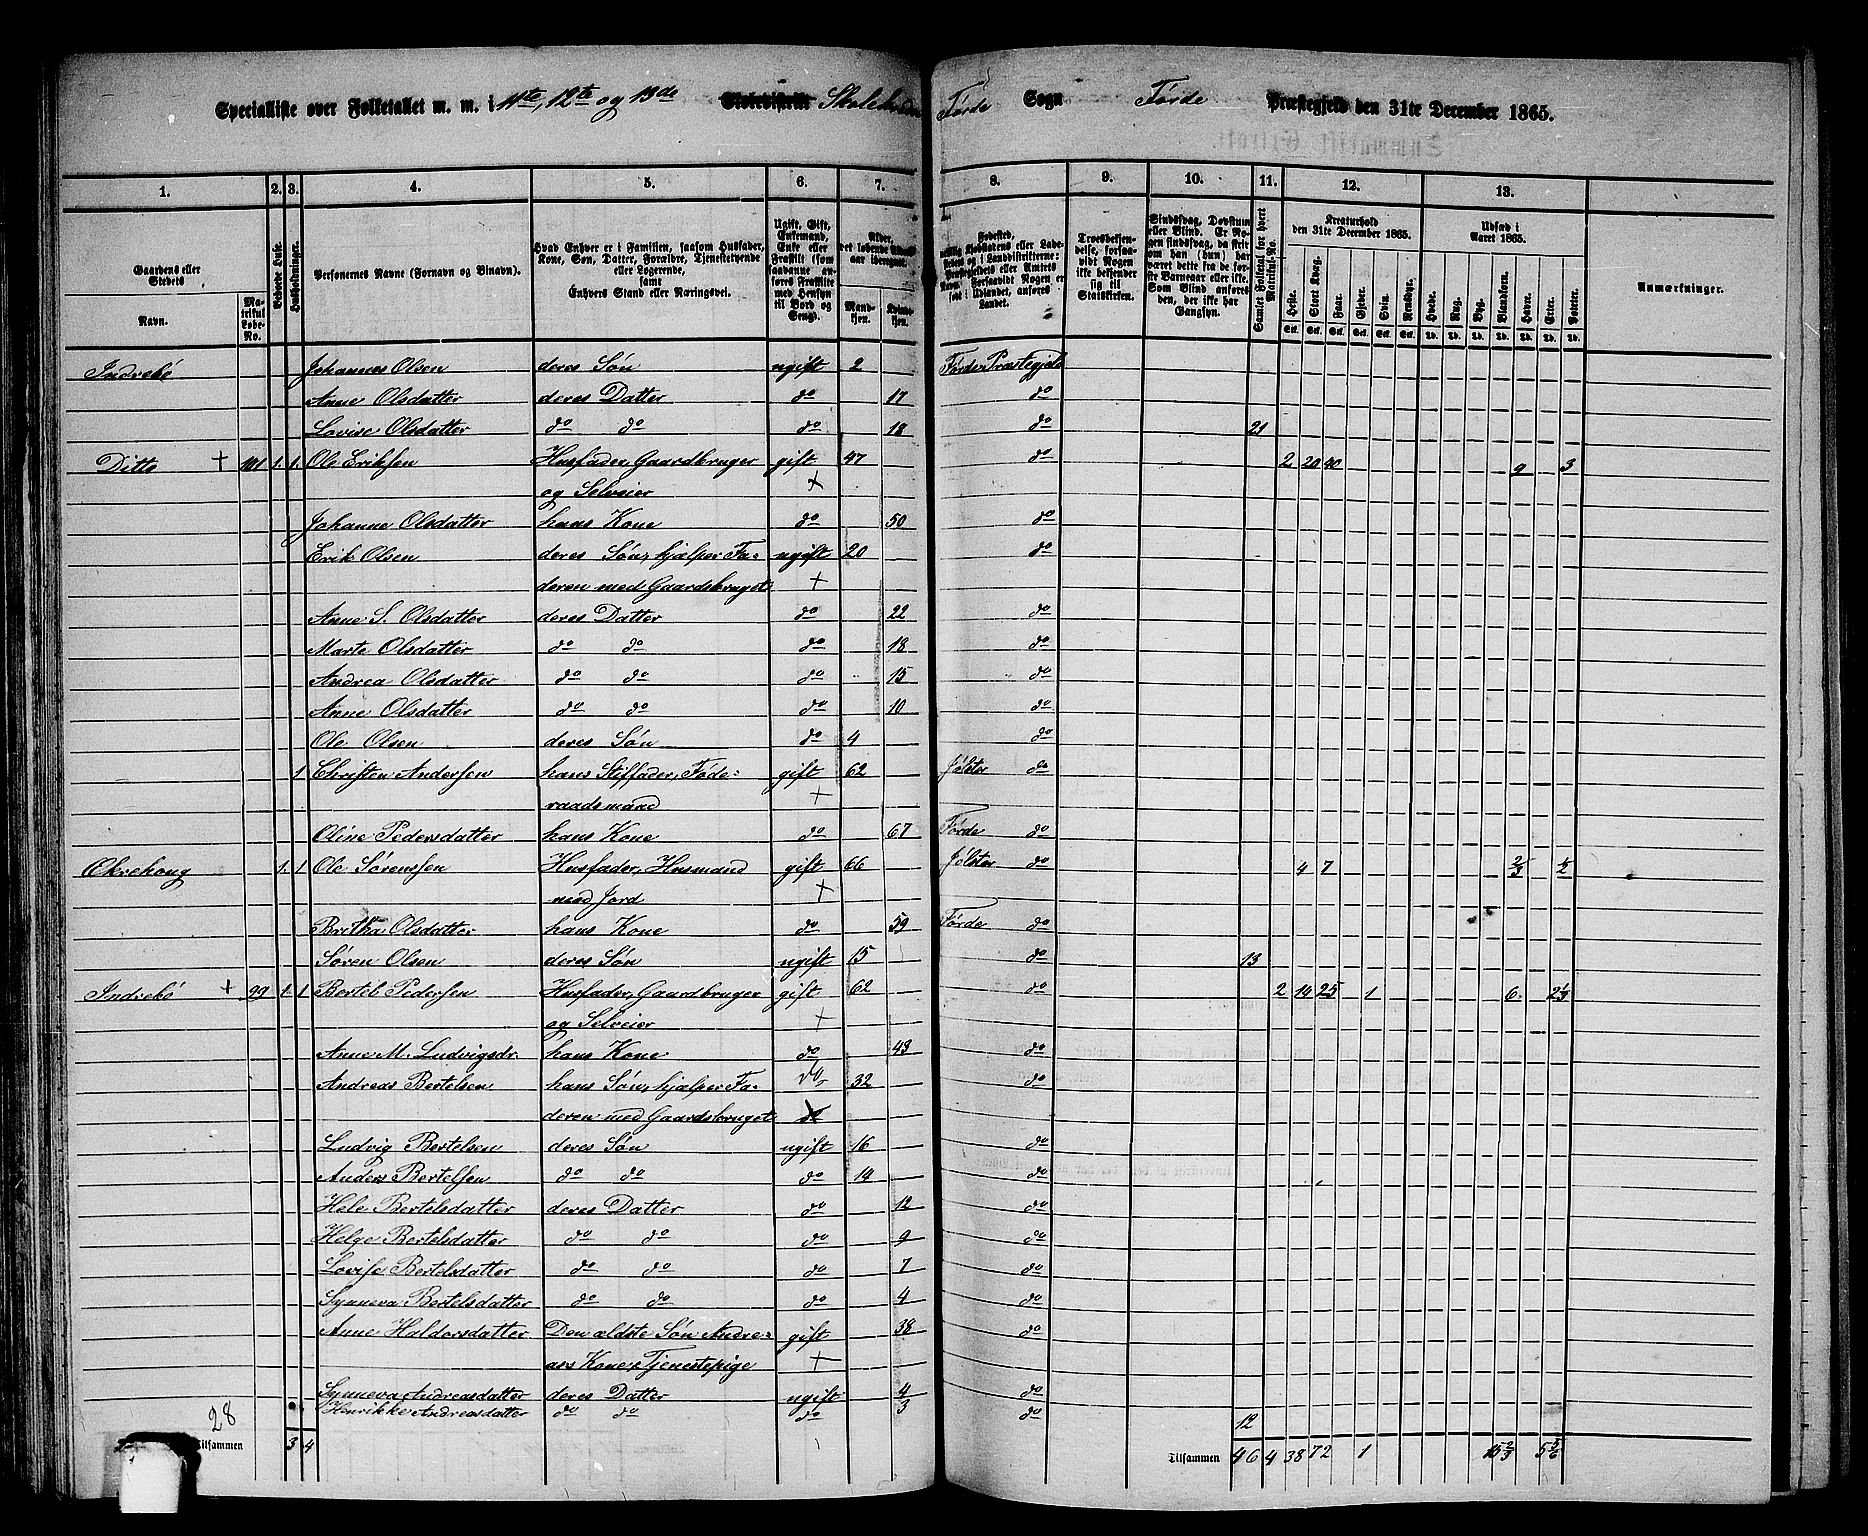 Specialliste over Folketallet m. m. i 11te, 12te og 13de Skolekreds Førde Sogn Førde Præstegjeld den 31te December 1865.
1. 2. 3. 4. 5. 6. 7. 8. 9. 10. 11. 12. 13.
Gaardens eller Stedets Navn. Matrikul Løbe-No. Beboede Huse. Husholdninger. Personernes Navne (Fornavn og Binavn). Hvad Enhver er i Familien, saasom Husfader, Kone, Søn, Datter, Forældre, Tjenestetyende eller Logerende, samt Enhvers Stand eller Næringsvei. Kreaturhold den 31te December 1865. Udsæd i Aaret 1865. Anmærkninger.
Heste. Stort Kvæg. Faar. Gjeder. Svin. Rensdyr. Hvede. Rug. Byg. Blandkorn. Havre. Erter. Poteter.
Indrebø Johannes Olsen deres Søn ugift 2 Førde Præstegjeld
Anne Olsdatter deres Datter do 17 do
Lovise Olsdatter do do do 18 do 21
Ditto + 101 1. 1. Ole Eriksen Husfader, Gaardbruger gift 47 do 2 20 40 9 3
og Selveier +
Johanne Olsdatter hans Kone do 50 do
Erik Olsen deres Søn, hjælper Fa- ugift 20 do
deren med Gaardsbruget +
Anne S. Olsdatter deres Datter do 22 do
Marte Olsdatter do do do 18 do
Andrea Olsdatter do do do 15 do
Anne Olsdatter do do do 10 do
Ole Olsen deres Søn do 4 do
1 Christen Andersen hans Stiffader, Føde- gift 62 Jølster do
raadsmand +
Oline Pedersdatter hans Kone do 67 Førde do
Økrehaug 1. 1 Ole Sørenssen Husfader, Husmand gift 66 Jølster do 4 7 2/3 1/2
med Jord +
Britha Olsdatter hans Kone do 59 Førde do
Søren Olsen deres Søn ugift 15 do 13
Indrebø + 99 1 1 Bertel Pedersen Husfader, Gaardbruger gift 62 do 2 14 25 1 6 2 1/3
og Selveier +
Anne M. Ludvigsdr. hans Kone do 43 do
Andreas Bertelsen hans Søn, hjælper Fa- do 32 do
deren med Gaardsbruget
Ludvig Bertelsen deres Søn ugift 16 do
Anders Bertelsen do do do 14 do
Hele Bertelsdatter deres Datter do 12 do
Helge Bertelsdatter do do do 9 do
Lovise Bertelsdatter do do do 7 do
Synneva Bertelsdatter do do do 4 do
Anne Haldorsdatter Den ældste Søn Andre- gift 38 do
as's Kone, Tjenestepige +
Synneva Andreasdatter deres Datter ugift 4 do
Henrikke Andreasdatter do do do 3 do 12
28
Tilsammen 3 4 Tilsammen 46 4 38 72 1 15 2/3 5 5/6